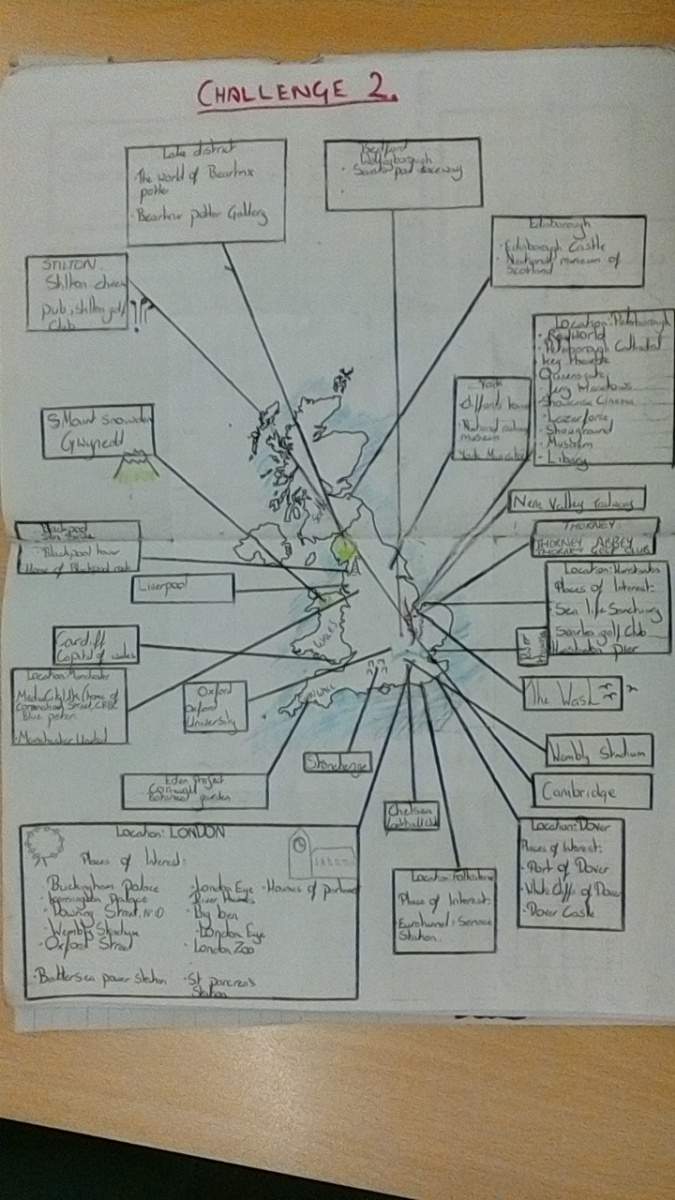 CHALLENGE 2.
Lake district
The world of Beartrix
potter
Beartrix potter Gallery
Bedford
Santa pod Raceway
Edinborough
Edinborough Castle
National museum of
Scotland
STILTON
Stilton cheese
pub, stilton golf
club
Location: Peterborough
Railworld
Peterborough Cathedral
key theatre
Queensgate
Ferry Meadows
Showcase Cinema
Lazerforce
Showground
Museum
Library
York
National railway
museum
Mount Snowdon
Gwynedd
Nene Valley railway
THORNEY
THORNEY ABBEY
THORNEY GOLF CLUB
Blackpool
Blackpool tower
Home of Blackpool rock
Liverpool
Location: Hunstanton
Places of Interest:
Sea life Sanctuary
golf Club
Hunstanton Pier
Cardiff
Capital of wales
Wales
Location: Manchester
MediaCityUk (home of
Coronation Street, CBBC
Blue peter.
Manchester United
Oxford
Oxford
University
The Wash
Stonehenge
Wembly Stadium
Eden Project
Cornwall
Botanical garden
Cambridge
Chelsea
football club
Location: LONDON
Places of Interest:
Buckingham Palace
Kensington Palace
Downing Street, No 10
Wembly Stadium
Oxford Street
Battersea power station
London Eye
River Thames
Big ben
London Eye
London Zoo
St pancras's
Station
Houses of parliament
Location: Folkstone
Place of Interest:
Eurotunnel Service
Station.
Location: Dover
Places of Interest:
Port of Dover
White Cliffs of Dover
Dover Castle